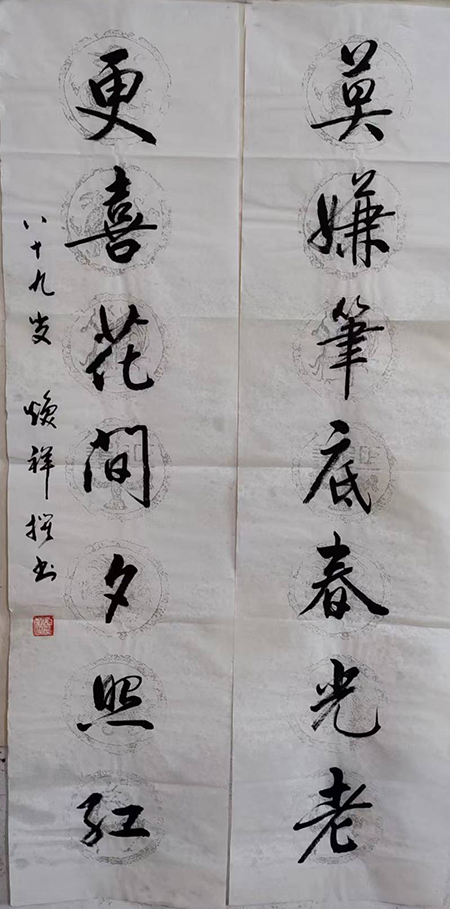 莫嫌筆底春光老
更喜花間夕照红
八十九岁 焕祥撰书